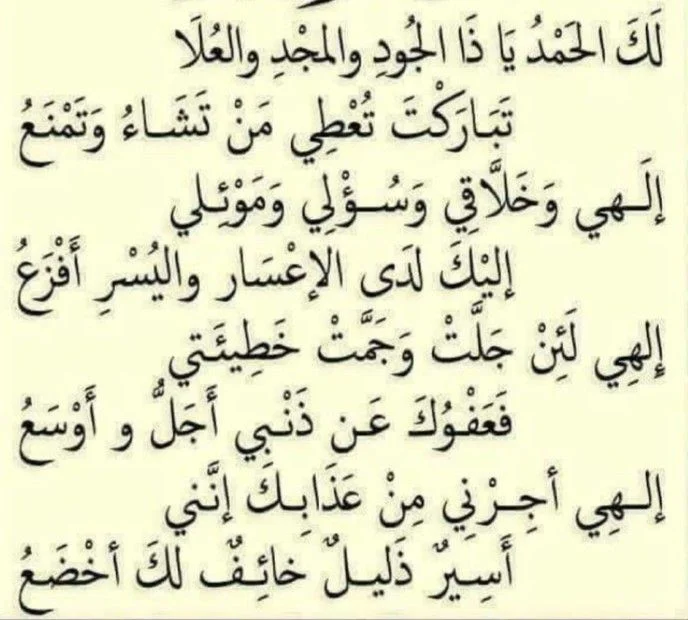 لَكَ الحَمْدُ يَا ذَا الجُودِ والمَجْدِ والعُلَا
تَبَارَكْتَ تُعْطِي مَنْ تَشَاءُ وَتَمْنَعُ
إلَهي وَخَلَّاقِي وَسُؤْلِي وَمَوْئِلي
إليْكَ لدَى الإعْسَار واليُسْرِ أَفْزَعُ
إلهِي لَئِنْ جَلَّتْ وَجَمَّتْ خَطِيئَتي
فَعَفْوُكَ عَن ذَنْبِي أَجَلُّ و أَوْسَعُ
إلهِي أجِرْنِي مِنْ عَذَابِكَ إنَّني
أَسِيرٌ ذَليلٌ خائِفٌ لكَ أخْضَعُ